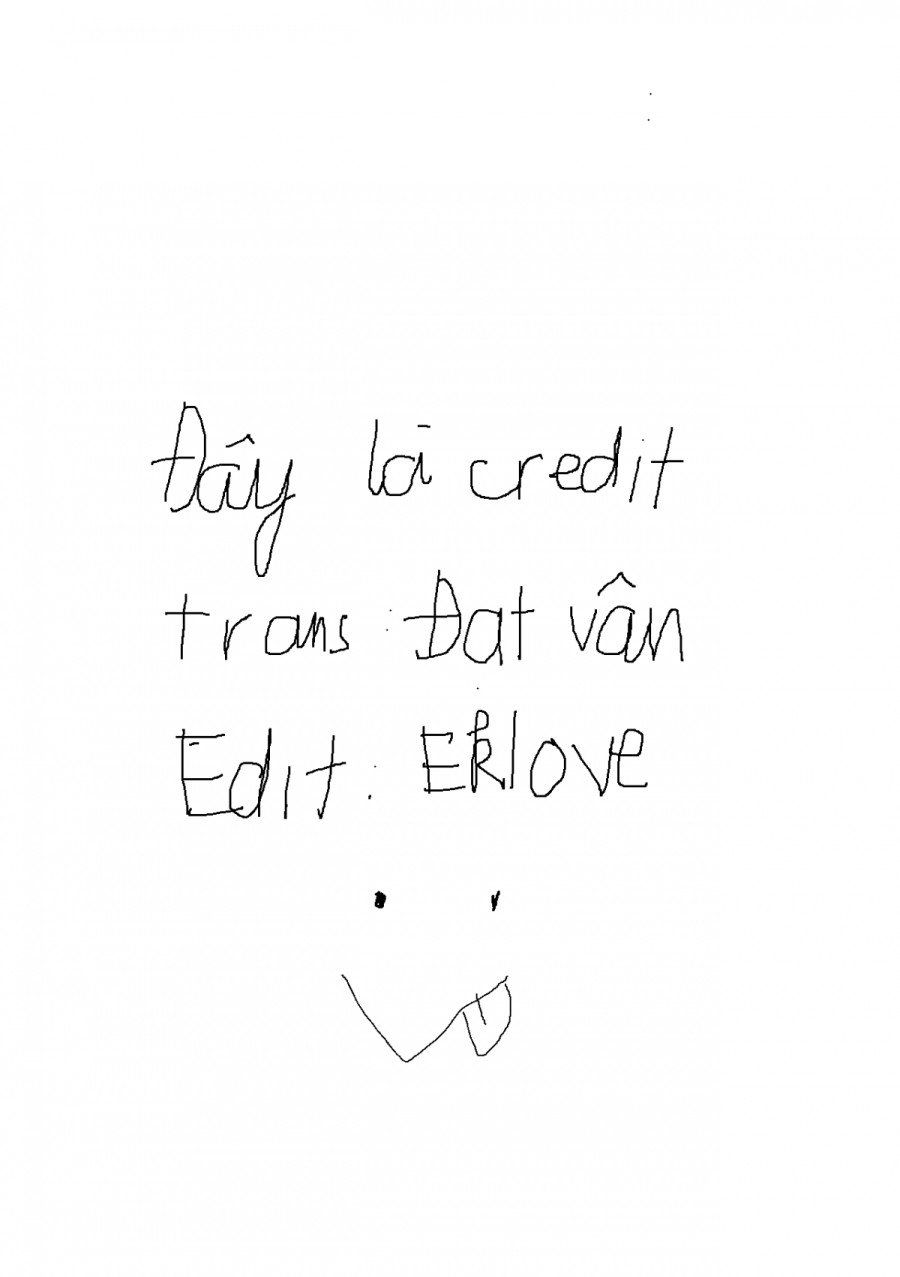 Đây là credit
trans: Đạt vân
Edit: Eklove